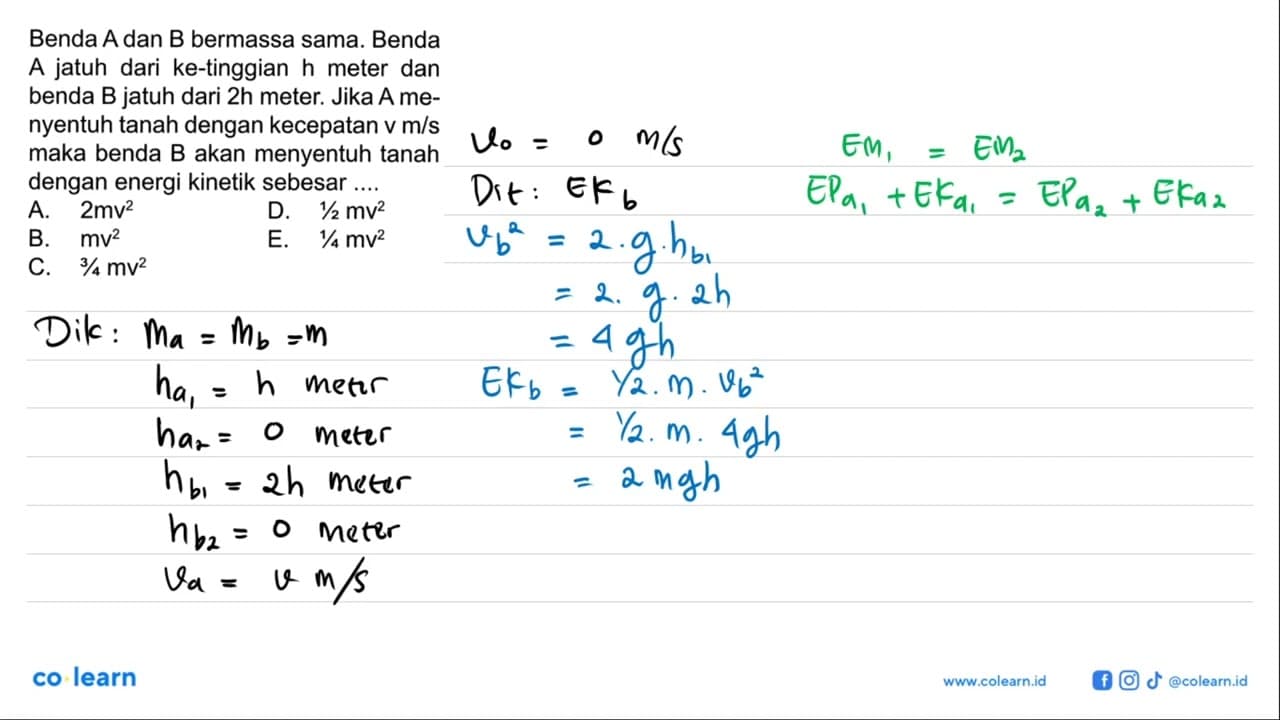 Benda A dan B bermassa sama. Benda
A jatuh dari ke-tinggian h meter dan
benda B jatuh dari 2h meter. Jika A me-
nyentuh tanah dengan kecepatan v m/s
maka benda B akan menyentuh tanah
dengan energi kinetik sebesar ....
A. 2mv² D. ½ mv²
B. mv² E. ¼ mv²
C. ¾ mv²
Dik: ma = mb = m
ha₁ = h meter
ha₂ = 0 meter
hb₁ = 2h meter
hb2 = 0 meter
va = v m/s
v₀ = 0 m/s
Dit: EKb
vb² = 2.g.hb₁
= 2. g. 2h
= 4 gh
EKb = 1/2. m. vb²
= 1/2. m. 4gh
= 2 mgh
EM₁ = EM₂
EPa₁ + EKa₁ = EPa₂ + EKa₂
co learn
www.colearn.id
@colearn.id